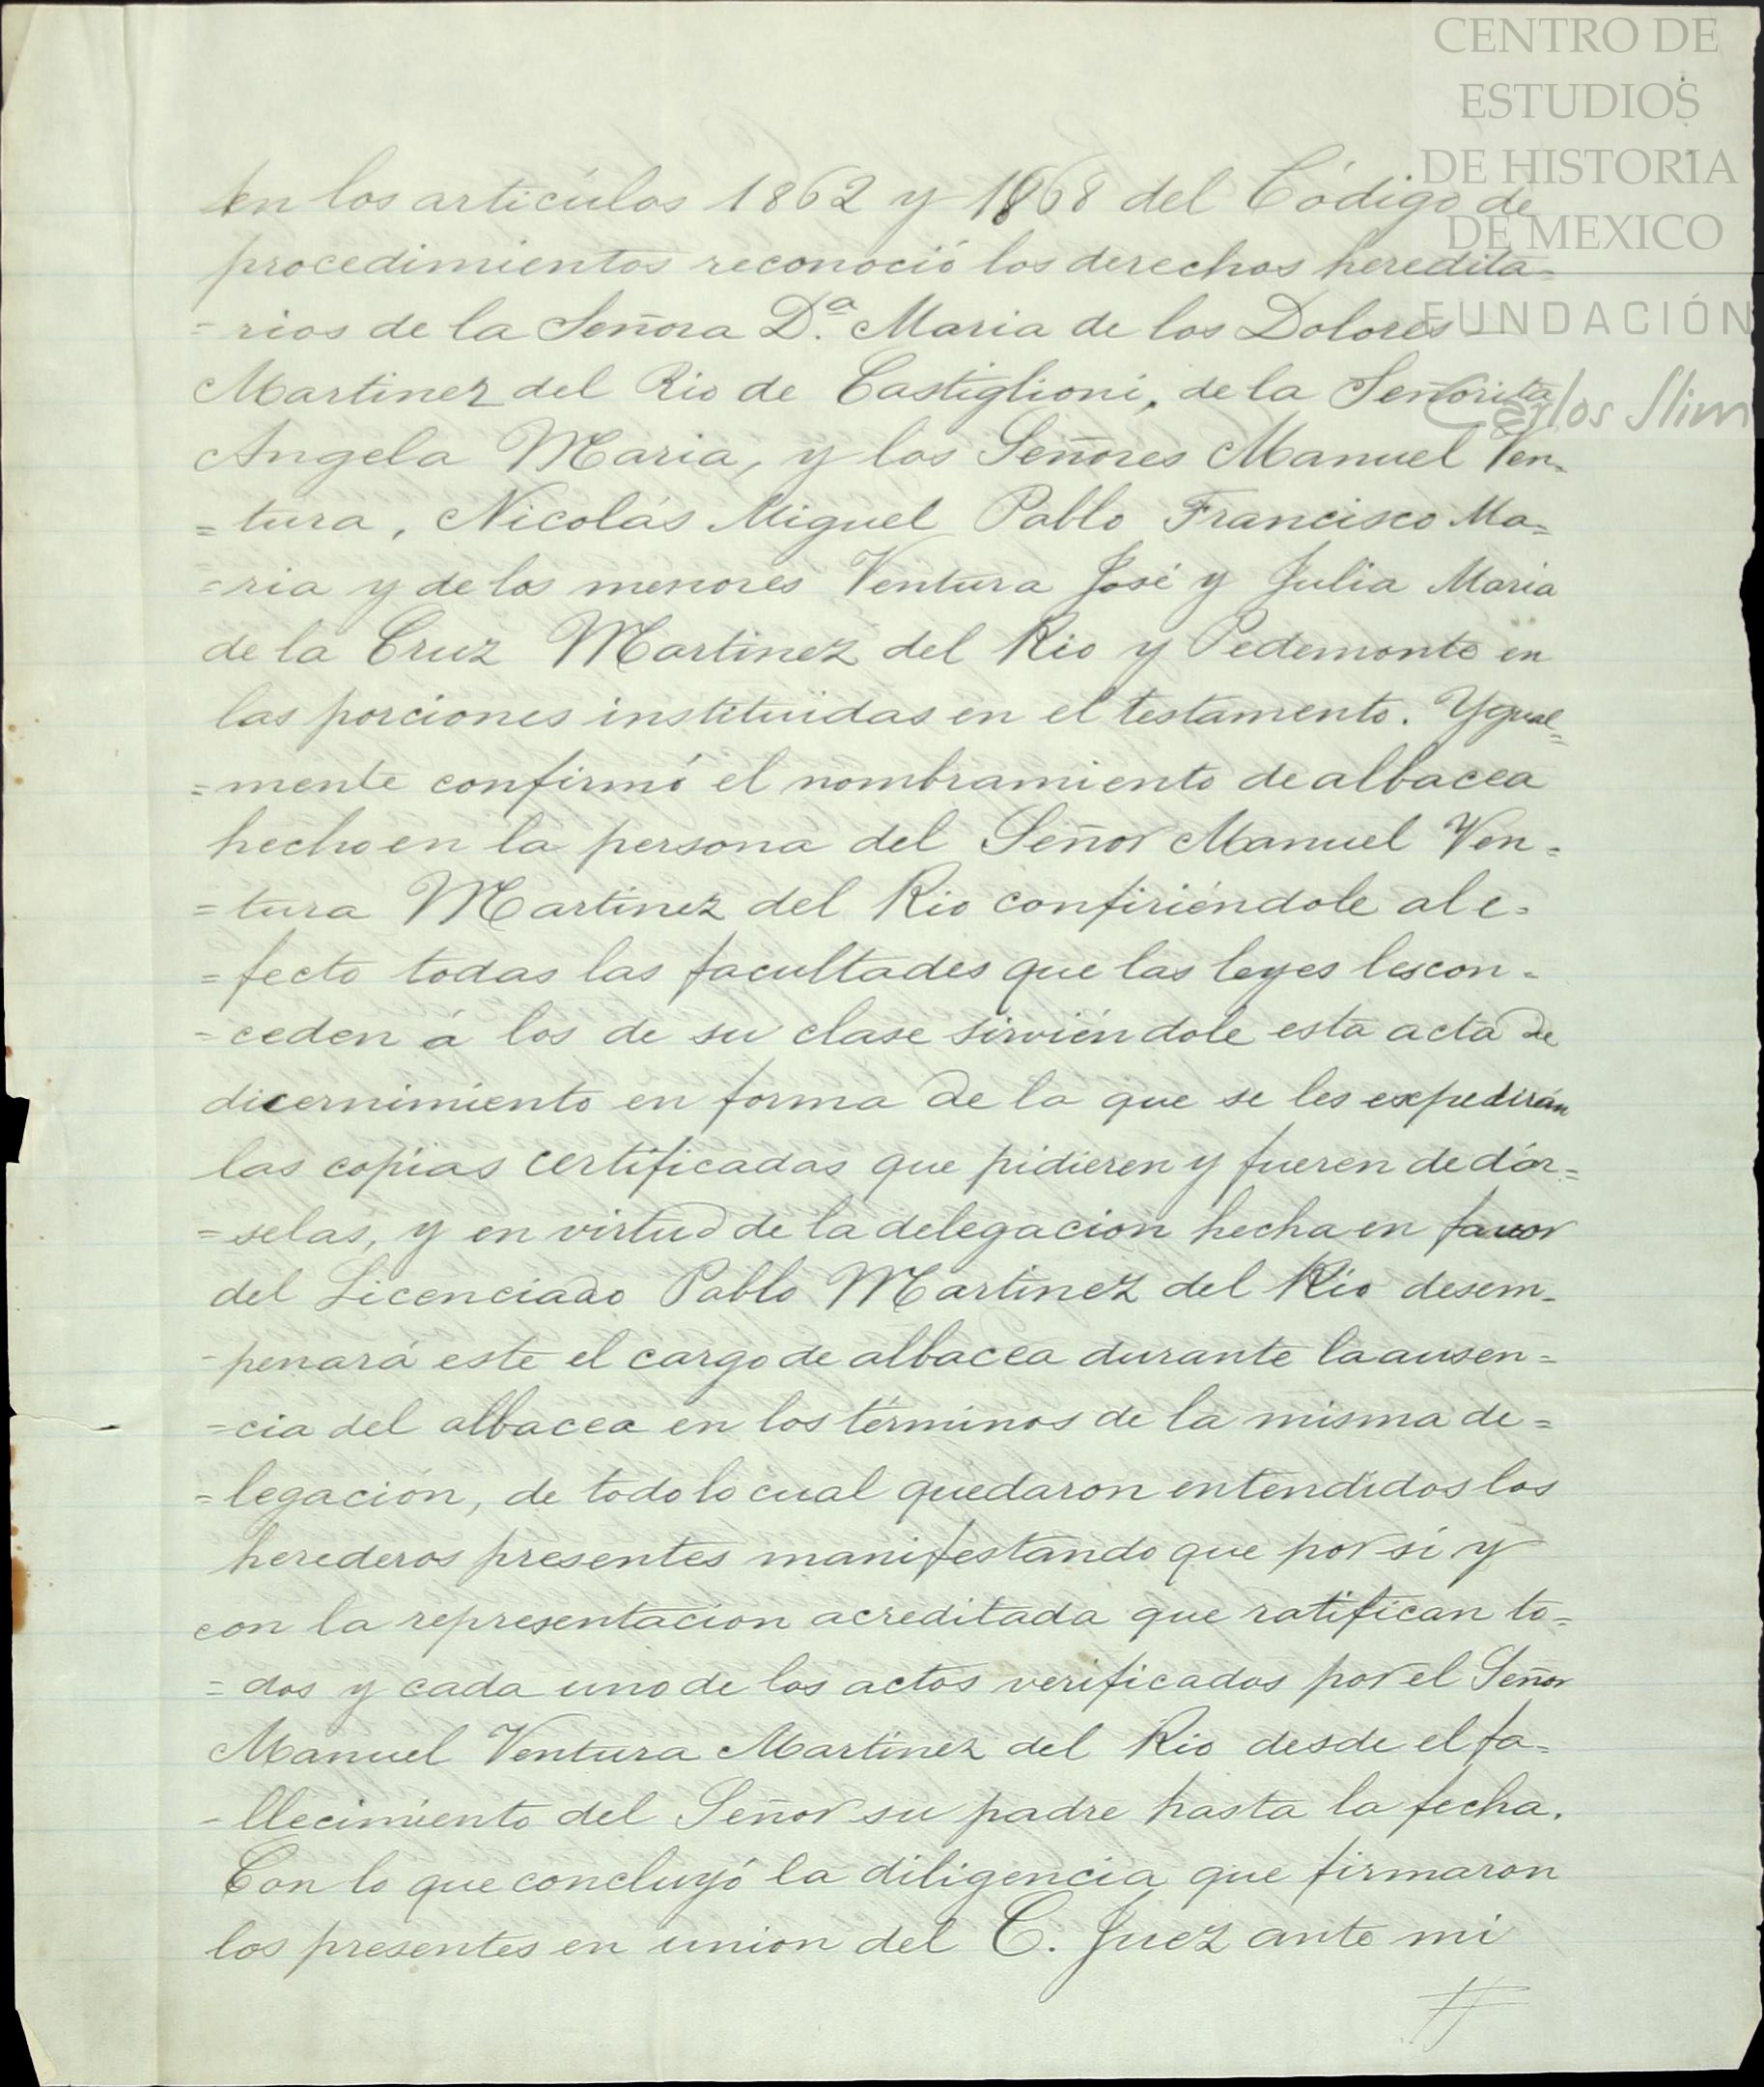 CENTRO DE
ESTUDIOS
DE HISTORIA
DE MEXICO
FUNDACIÓN
Carlos Slim
en los artículos 1862 y 1868 del Código de
procedimientos reconoció los derechos heredita-
=rios de la Señora D.ª Maria de los Dolores
Martinez del Rio de Castiglioni, de la Señorita
Angela Maria, y los Señores Manuel Ven=
=tura, Nicolás Miguel Pablo Francisco Ma=
=ria y de los menores Ventura José y Julia Maria
de la Cruz Martinez del Rio y Pedemonte en
las porciones instituidas en el testamento. Ygual=
=mente confirmó el nombramiento de albacea
hecho en la persona del Señor Manuel Ven=
=tura Martinez del Rio confiriéndole al e=
=fecto todas las facultades que las leyes les con=
=ceden á los de su clase sirviéndole esta acta de
dicernimiento en forma de la que se les expedirán
las copias certificadas que pidieren y fueren de dár=
=selas, y en virtud de la delegacion hecha en favor
del Licenciado Pablo Martinez del Rio desem-
-penará este el cargo de albacea durante la ausen=
=cia del albacea en los términos de la misma de=
=legación, de todo lo cual quedaron entendidos los
herederos presentes manifestando que por sí y
con la representacion acreditada que ratifican to=
=dos y cada uno de los actos verificados por el Señor
Manuel Ventura Martinez del Rio desde el fa=
-llecimiento del Señor su padre hasta la fecha.
Con lo que concluyó la diligencia que firmaron
los presentes en union del C. Juez ante mi